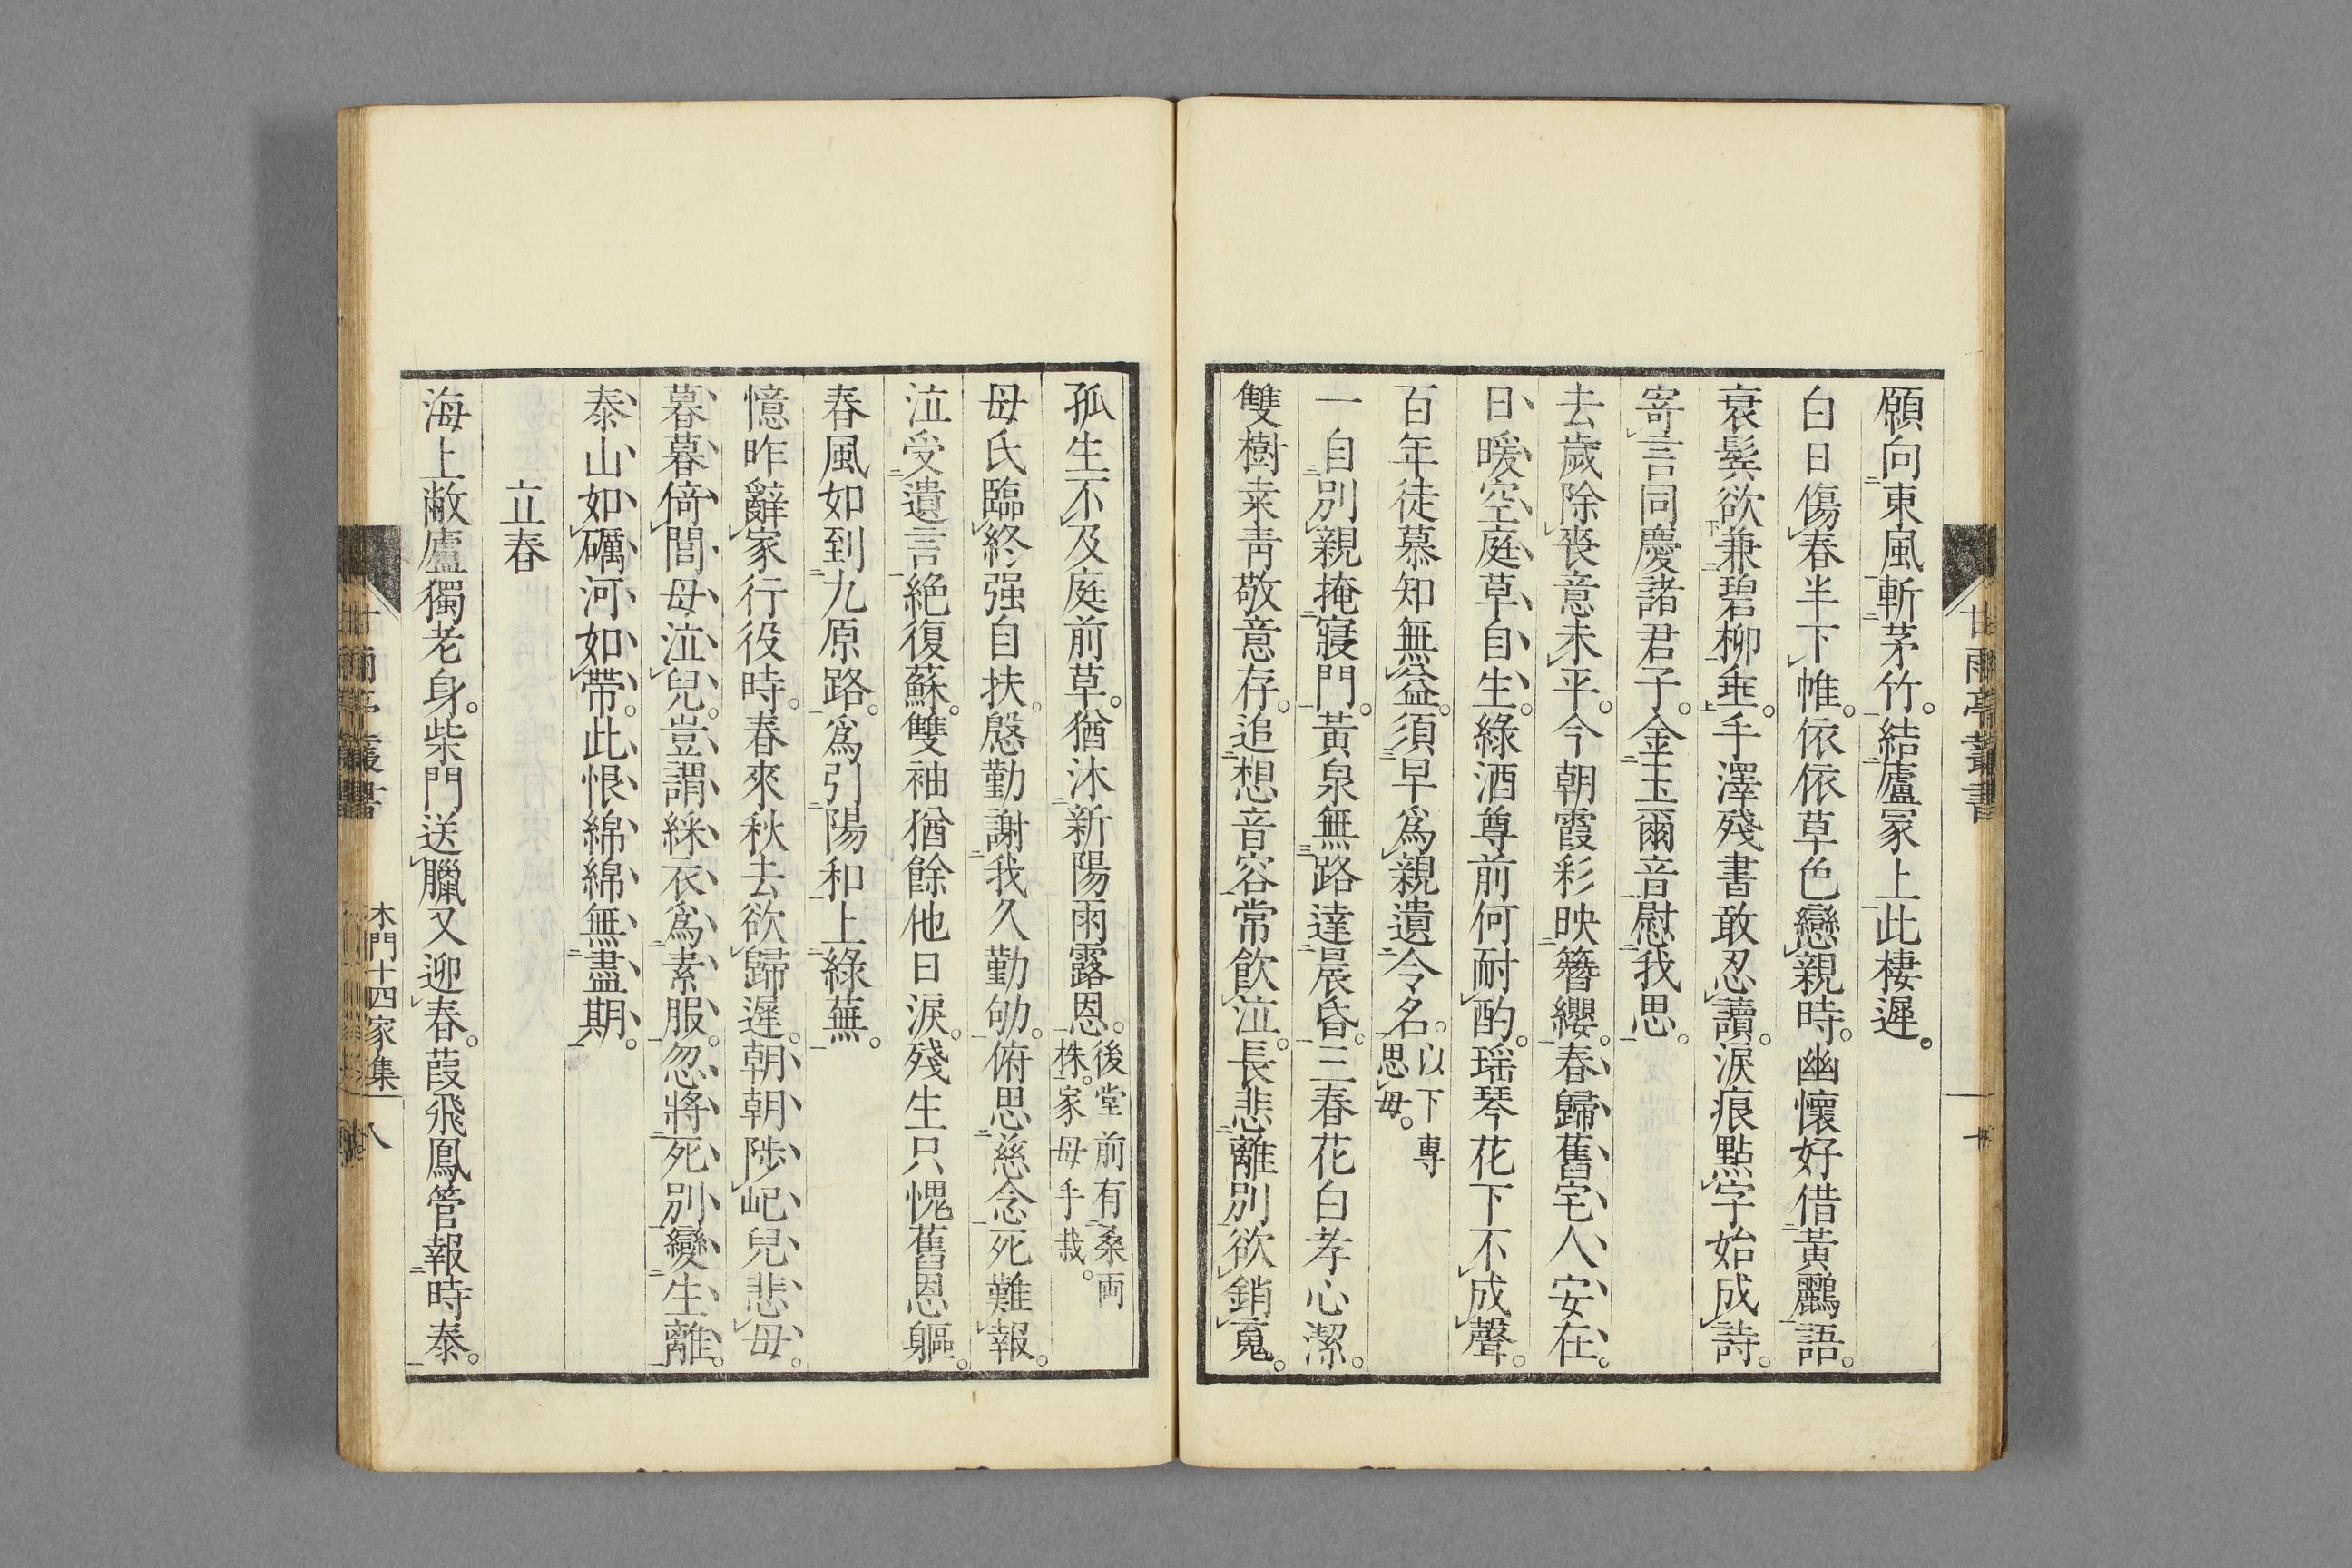 願向東風斬茅竹。結廬冢上此棲遲。
白日傷春半下帷。依依草色戀親時。幽懷好借黃鸝語。
衰鬂欲兼碧柳垂。手澤殘書敢忍讀。淚痕點字始成詩。
寄言同慶諸君子。金玉爾音慰我思。
去歲除喪意未平。今朝霞彩映簪纓。春歸舊宅人安在。
日暖空庭草自生。綠酒尊前何耐酌。瑶琴花下不成聲。
百年徒慕知無益。須早爲親遺令名。以下專
思母。
一自別親掩寢門。黃泉無路達晨昏。三春花白孝心潔。
雙樹桒靑敬意存。追想音容常飮泣。長悲離別欲銷䰟。
甘雨亭叢書
孤生不及庭前草。猶沐新陽雨露恩。後堂前有桑両
株。家母手栽。
母氏臨終强自扶。慇勤謝我久勤劬。俯思慈念死難報。
泣受遺言絶復蘇。雙袖猶餘他日淚。殘生只愧舊恩軀。
春風如到九原路。爲引陽和上綠蕪。
憶昨辭家行役時。春來秋去欲歸遲。朝朝陟屺兒悲母。
暮暮倚閭母泣兒。豈謂綵衣爲素服。忽將死別變生離。
泰山如礪河如帶。此恨綿綿無盡期。
立春
海上敝廬獨老身。柴門送臘又迎春。葭飛鳳管報時泰。
木門十四家集
八